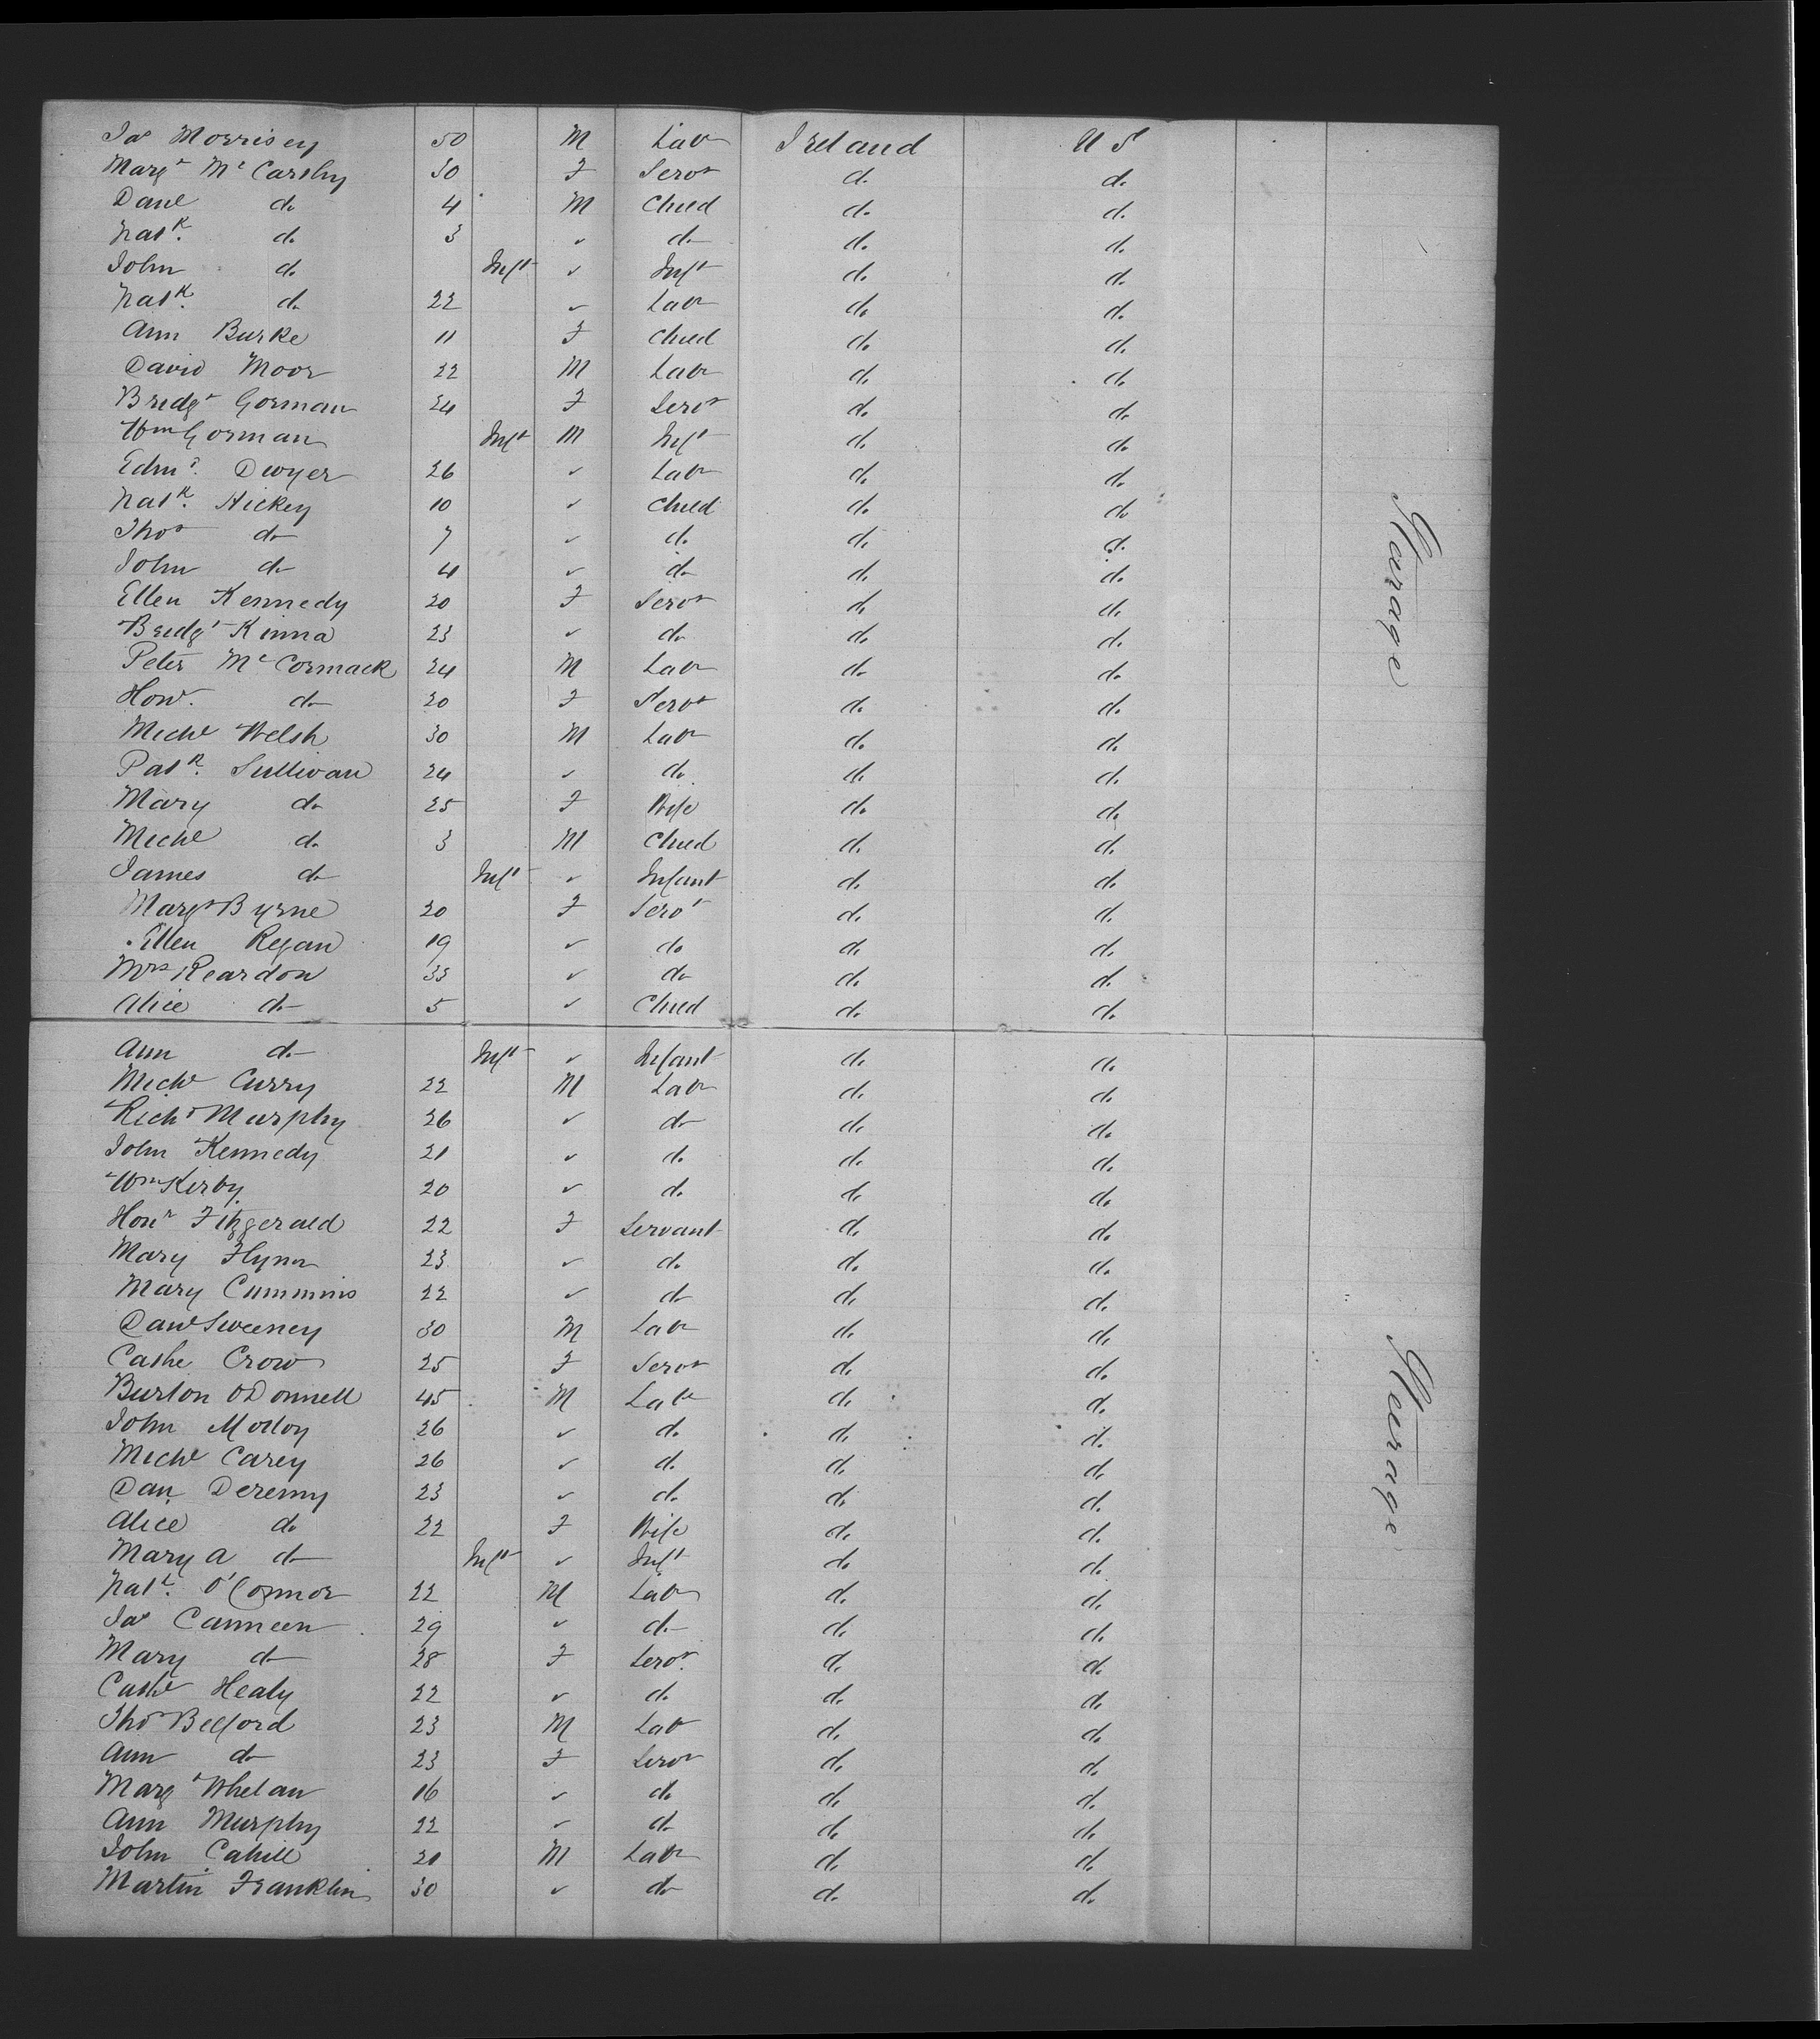 Jas Morrisey 50 M Labr Ireland U S
Margt McCarthy 30 F Servt do do
Danl do 4 M Child do do
Patk. do 3 ✓ do do do
John do Inft ✓ Inft do do
Patk. do 22 ✓ Labr do do
Ann Burke 11 F Child do do
David Moor 22 M Labr do do
Bridgt Gorman 24 F Servt do do
Wm Gorman Inft M Inft do do
Edmd. Dwyer 26 ✓ Labr do do
Patk. Hickey 10 ✓ Child do do
Thos do 7 ✓ do do do
John do 4 ✓ do do do
Ellen Kennedy 20 F Servt do do
Bridgt Kinna 23 ✓ do do do
Peter McCormack 24 M Labr do do
Honr. do 20 F Servt do do
Michl Welsh 30 M Labr do do
Patk. Sullivan 24 ✓ do do do
Mary do 25 F Wife do do
Michl do 3 M Child do do
James do Inft ✓ Infant do do
Margt Byrne 20 F Servt do do
Ellen Regan 19 ✓ do do do
Mrs Reardon 33 ✓ do do do
Alice do 5 ✓ Child do do
Steerage
Ann do Inft ✓ Infant do do
Michl Curry 22 M Labr do do
Richd Murphy 26 ✓ do do do
John Kennedy 21 ✓ do do do
Wm Kirby 20 ✓ do do do
Honr Fitzgerald 22 F Servant do do
Mary Flynn 23 ✓ do do do
Mary Cummins 22 ✓ do do do
Danl Sweeney 30 M Labr do do
Cathe Crow 25 F Servt do do
Burton O'Donnell 45 M Labr do do
John Molloy 26 ✓ do do do
Michl Carey 26 ✓ do do do
Dan Deremy 23 ✓ do do do
Alice do 22 F Wife do do
Mary A do Inft ✓ Inft do do
Patk. O'Connor 22 M Labr do do
Jas Canneen 29 ✓ do do do
Mary do 28 F Servt. do do
Cathe Healy 22 ✓ do do do
Thos Belford 23 M Labr do do
Ann do 23 F Servt do do
Margt Whelan 16 ✓ do do do
Ann Murphy 22 ✓ do do do
John Cahill 21 M Labr do do
Martin Franklin 30 ✓ do do do
Steerage